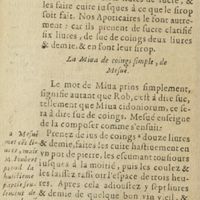 les faire cuire iusques à ce que le sirop
soit fait. Nos Apoticaires le font autre-
ment: car ils prenent de sucre clarifié
six liures, de suc de coings deux liures
& demie, & en font leur sirop.
La Miua de coings simple, de
Mesué.
Le mot de Miua prins simplement,
signifie autant que Rob, c'est à dire suc,
tellement que Miua cidoniorum, ce se-
ra à dire suc de coings. Mesué enseigne
de la composer comme s'ensuit:
a Mesué
Prenez de ius de coings a douze liures
& demie, faites les cuite hastiuement en
vn pot de pierre, les escumant tousiours
iusques à la moitié, puis les coulez &
les laissez rassoir l'espace de trois heu-
res. Apres cela adioustez y sept liures
& demie de quelque bon vin vieil, &